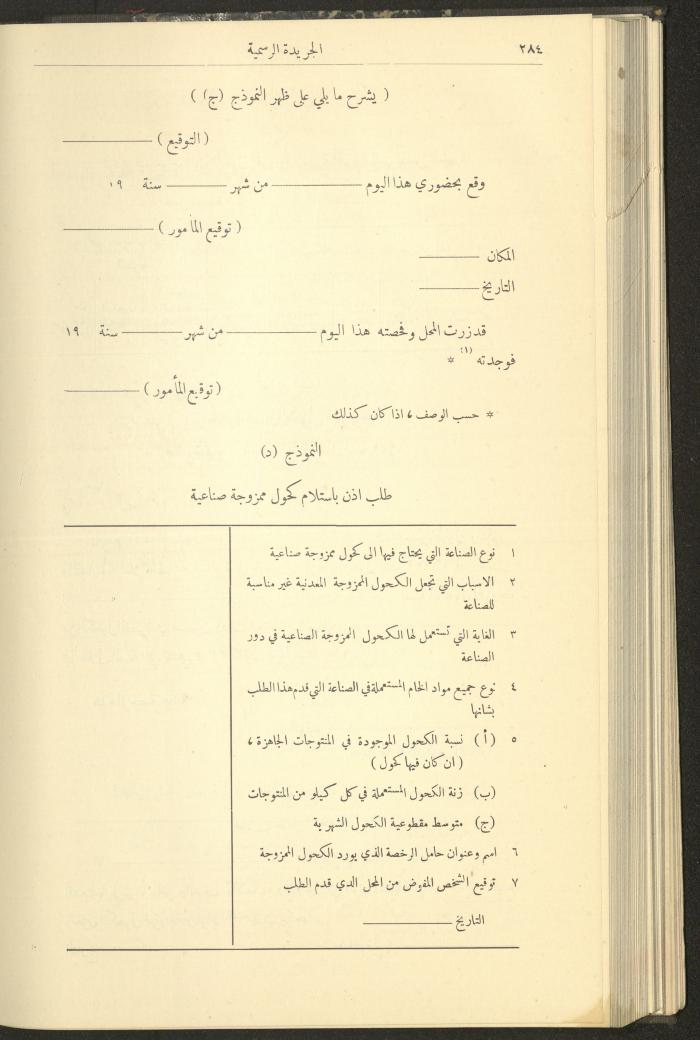 ٢٨٤
الجريدة الرسمية
( يشرح ما يلي على ظهر النموذج (ج) )
( التوقيع )
وقع بحضوري هذا اليوم من شهر سنة ١٩
( توقيع المأمور )
المكان
التاريخ
قد زرت المحل وفحصته هذا اليوم من شهر سنة ١٩
فوجدته (١) *
( توقيع المأمور )
* حسب الوصف ، اذا كان كذلك
النموذج (د)
طلب اذن باستلام كحول ممزوجة صناعية
١ نوع الصناعة التي يحتاج فيها الى كحول ممزوجة صناعية
٢ الاسباب التي تجعل الكحول الممزوجة المعدنية غير مناسبة
للصناعة
٣ الغاية التي تستعمل لها الكحول الممزوجة الصناعية في دور
الصناعة
٤ نوع جميع مواد الخام المستعملة في الصناعة التي قدم هذا الطلب
بشانها
٥ ( أ ) نسبة الكحول الموجودة في المنتوجات الجاهزة ،
( ان كان فيها كحول )
(ب) زنة الكحول المستعملة في كل كيلو من المنتوجات
(ج) متوسط مقطوعية الكحول الشهرية
٦ اسم وعنوان حامل الرخصة الذي يورد الكحول الممزوجة
٧ توقيع الشخص المفوض من المحل الدي قدم الطلب
التاريخ